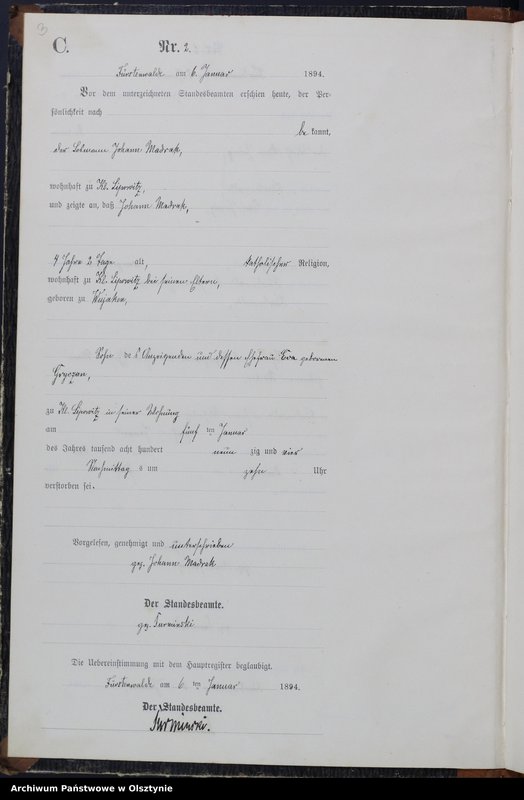 3
C.
Nr. 2.
Fürstenwalde am 6. Januar 1894.
Vor dem unterzeichneten Standesbeamten erschien heute, der Per-
sönlichkeit nach
be kannt,
der Losmann Johann Madrak,
wohnhaft zu Kl. Lipowitz,
und zeigte an, daß Johann Madrak,
4 Jahre 2 Tage alt, katholischer Religion,
wohnhaft zu Kl. Lipowitz bei seinen Eltern,
geboren zu
Sohn des Anzeigenden und dessen Ehefrau Eva geborenen
Gryczan,
zu Kl. Lipowitz in seiner Wohnung
am fünf ten Januar
des Jahres tausend acht hundert neun zig und vier
Nachmittag s um zehn Uhr
verstorben sei.
Vorgelesen, genehmigt und unterschrieben
gez. Johann Madrak
Der Standesbeamte.
gez. Surminski
Die Uebereinstimmung mit dem Hauptregister beglaubigt.
Fürstenwalde am 6. ten Januar 1894.
Der Standesbeamte.
Surminski.
Archiwum Państwowe w Olsztynie